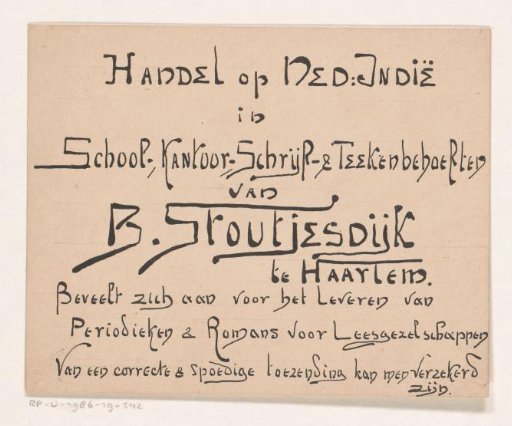 Handel op Ned: Indië
in
School-, Kantoor-, Schrijf- & Teekenbehoeften
van
B. Stoutjesdijk
te Haarlem.
Beveelt zich aan voor het Leveren van
Periodieken & Romans voor Leesgezelschappen
Van een correcte & spoedige toezending kan men verzekerd
zijn.
RP-D-1986-19-592